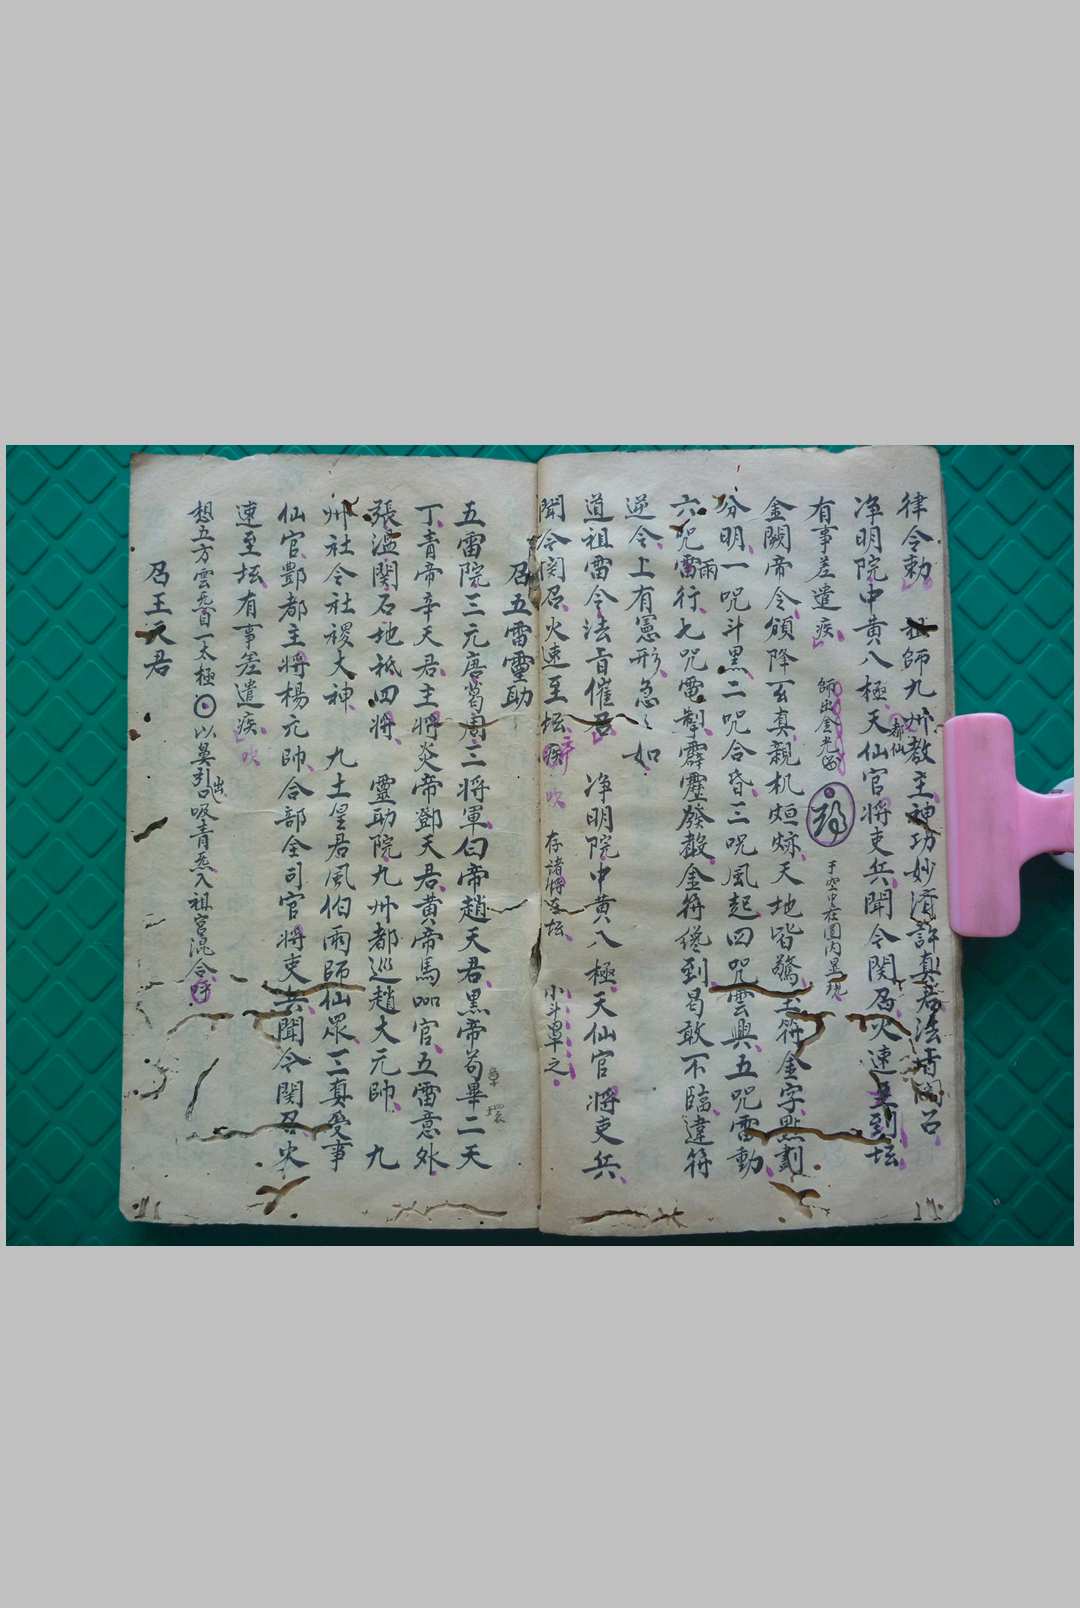 律令勅 祖師九州都仙教主神功妙濟許真君法旨関召
净明院中黄八極天仙官將吏兵聞令関召火速至到坛
有事差遣疾 師出金光 于空中在圓内显現
金闕帝令頒降玄真親机烜 天地皆驚玉符金字點劃
分明一咒斗黑二咒合昏三咒風起四咒雲興五咒雷動
六咒雷雨行七咒電掣霹靂發 金符繞到曷敢不臨違符
逆令上有憲形急〻如
道祖雷令法旨催君 净明院中黄八極天仙官將吏兵
聞令関召火速至坛疾 吹 存諸將至坛 小斗罩之
召五雷靈助
五雷院三元唐葛周三將軍白帝趙天君黑帝苟畢二天 章 環
丁青帝辛天君主將炎帝鄧天君黄帝馬 官五雷意外
張温関石地祗四將 靈助院九州都巡趙大元帥 九
州社令社禝大神 九土皇君風伯雨師仙眾三真受事
仙官酆都主將楊元帥合部全司官將吏兵聞令関召火
速至坛有事差遣疾 吹
想五方雲炁百一太極以鼻引出口吸青炁入祖宮混合呼
召王天君